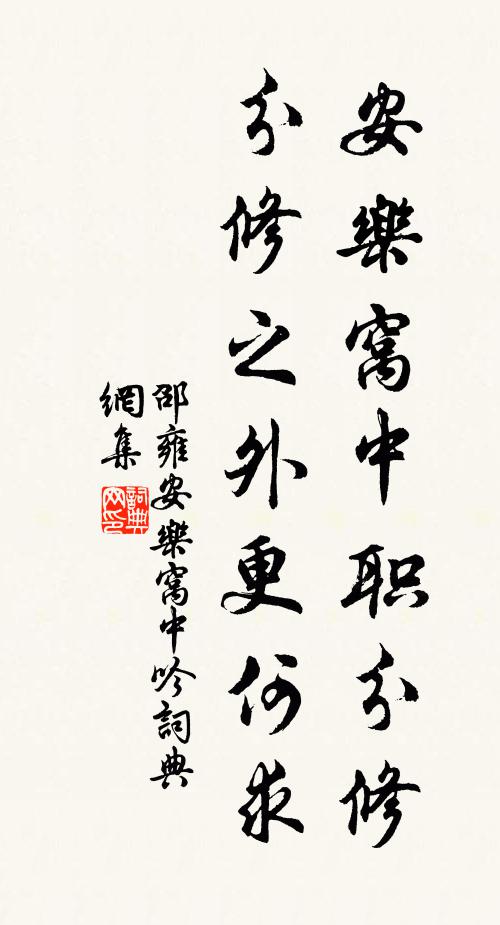 安樂窩中职分修
分修之外更何求
邵雍安樂窩中吟詞典
網集
詞典
网印